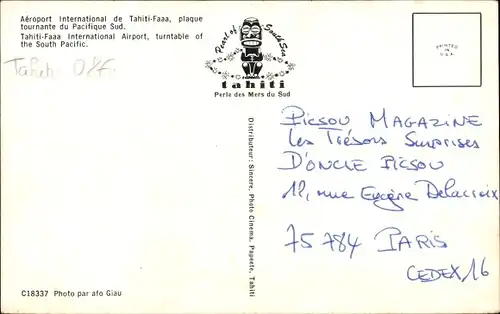 Aéroport International de Tahiti-Faaa, plaque
tournante du Pacifique Sud.
Tahiti-Faaa International Airport, turntable of
the South Pacific.
Pearl of South Sea
tahiti
Perle des Mers du Sud
PRINTED IN
U.S.A.
Distributeur: Sincere, Photo Cinema, Papeete, Tahiti
PICSOU MAGAZINE
Les Trésors Surprises
D'ONCLE PICSOU
12, rue Eugène Delacroix
75784 PARIS
CEDEX 16
C18337 Photo par afo Giau